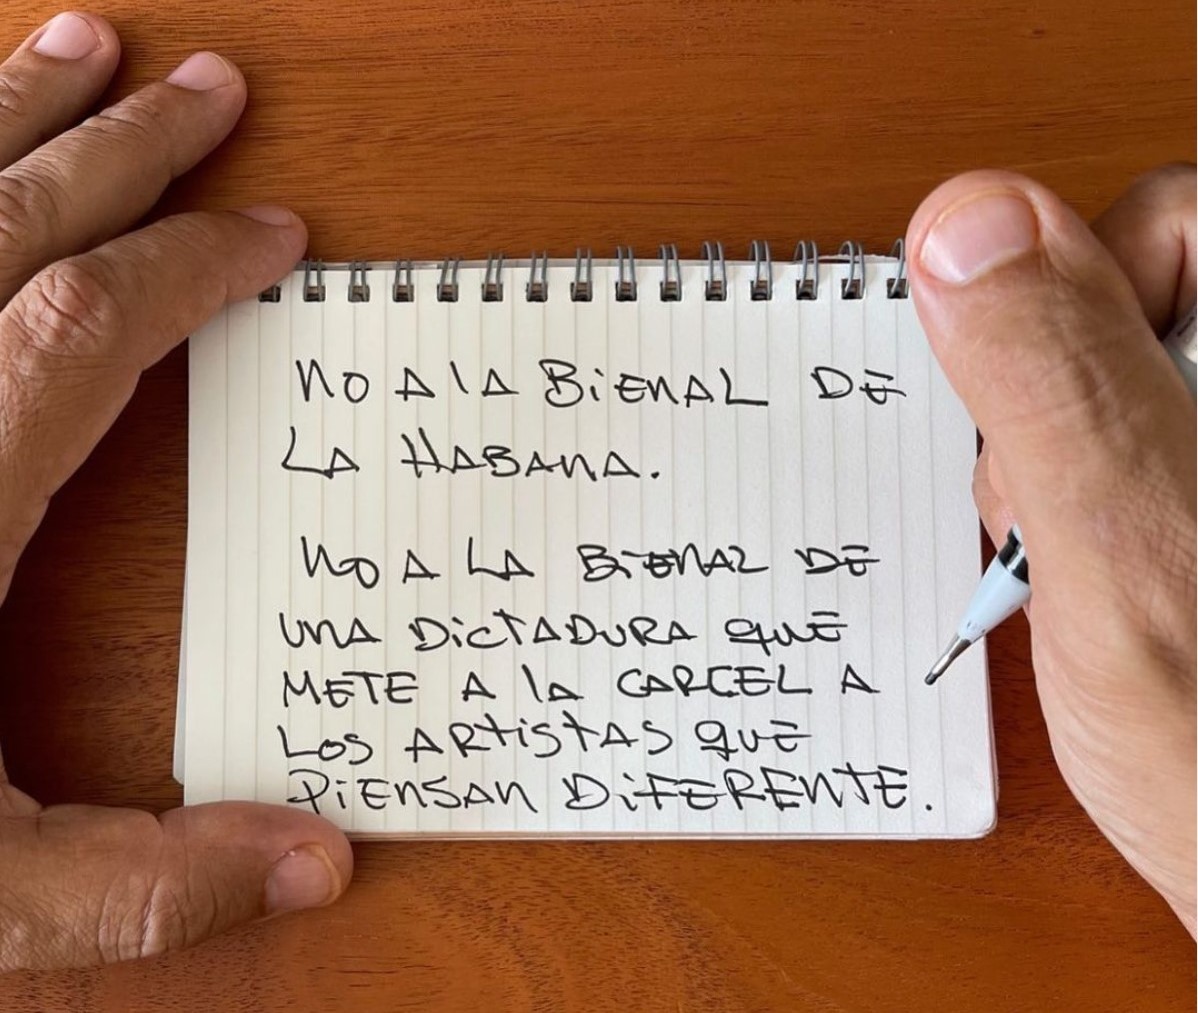 NO A lA BiENAL DE
LA HABANA.
NO A LA BiENAL DE
UNA DictADURA quE
METE A lA CARCEL A
LOS ARtistAS quE
PiENSAN DiFERENTE.